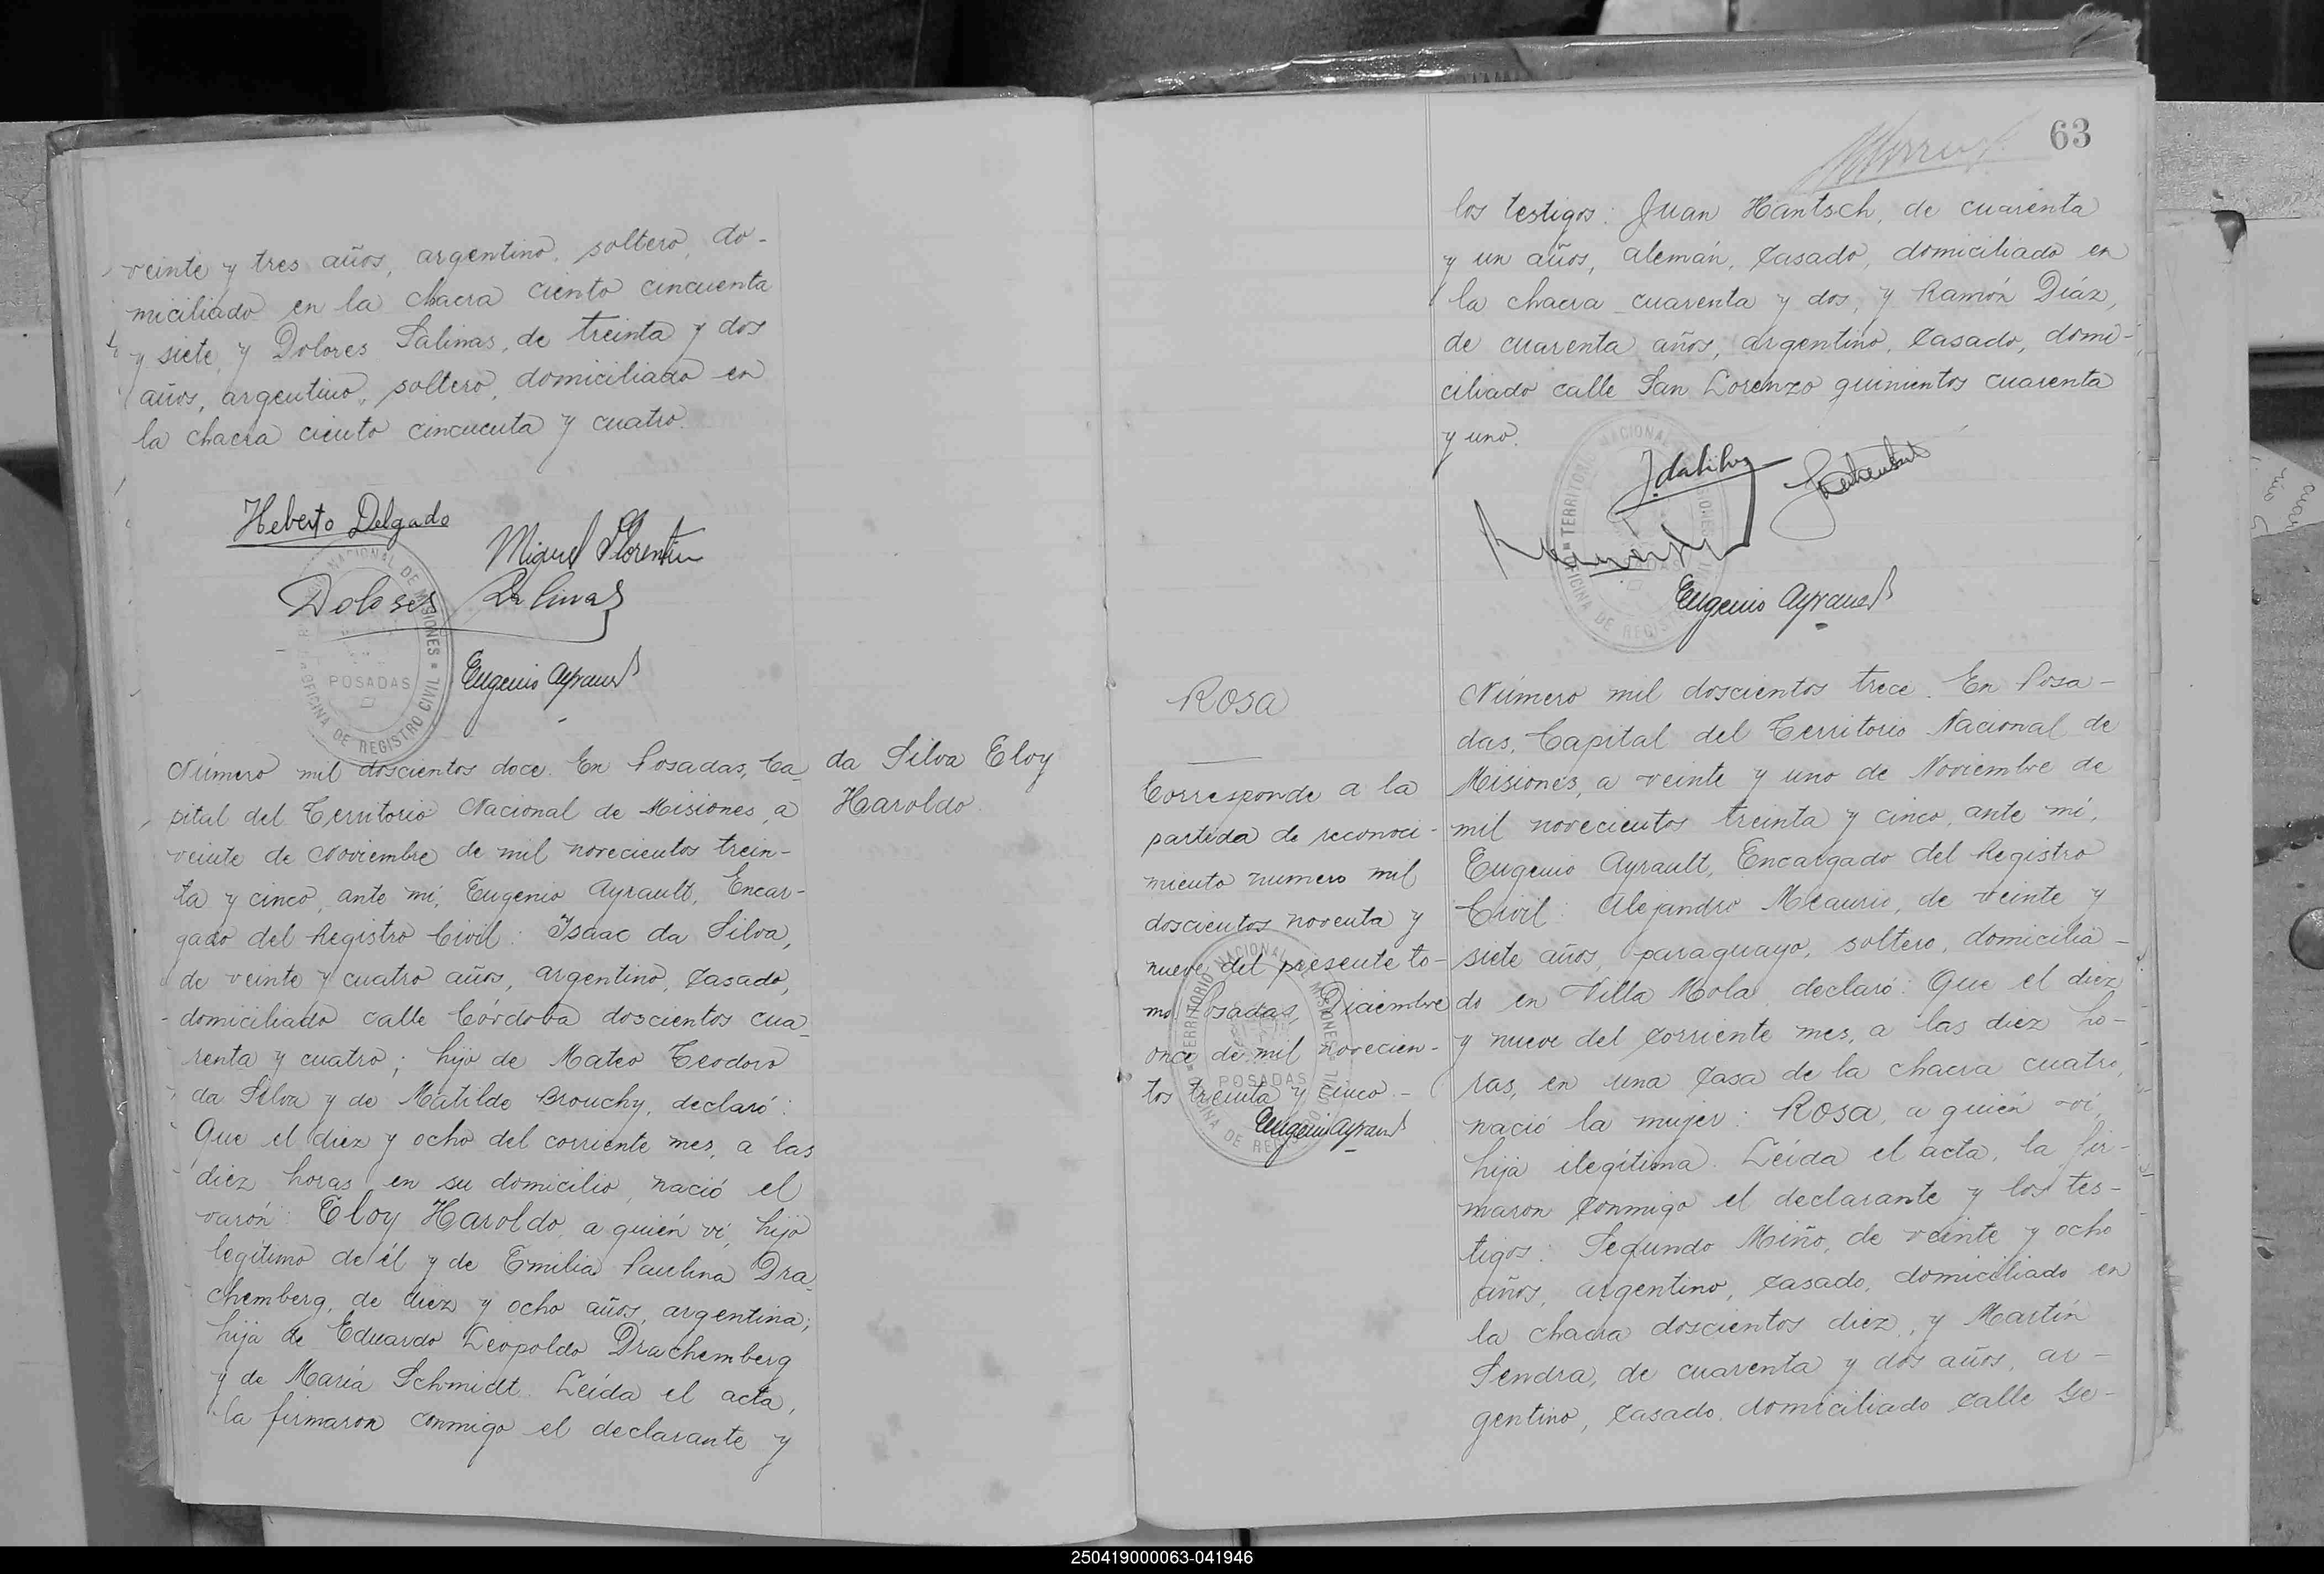 veinte y tres años, argentino, soltero, do-
miciliado en la chacra ciento cincuenta
y siete, y Dolores Salinas, de treinta y dos
años, argentino, soltero, domiciliado en
la chacra ciento cincuenta y cuatro.
Heberto Delgado
Miguel Florentin
Dolores Salinas
Eugenio Ayrault
TERRITORIO NACIONAL DE MISIONES
POSADAS
OFICINA DE REGISTRO CIVIL
Número mil doscientos doce. En Posadas, Ca-
pital del Territorio Nacional de Misiones, a
veinte de Noviembre de mil novecientos trein-
ta y cinco, ante mí, Eugenio Ayrault, Encar-
gado del Registro Civil: Isaac da Silva,
de veinte y cuatro años, argentino, casado,
domiciliado calle Córdoba doscientos cua-
renta y cuatro; hijo de Mateo Teodoro
da Silva y de Matilde Brouchy, declaró:
Que el diez y ocho del corriente mes, a las
diez horas, en su domicilio, nació el
varón: Eloy Haroldo, a quién ví, hijo
legítimo de él y de Emilia Paulina Dra-
chemberg, de diez y ocho años, argentina;
hija de Eduardo Leopoldo Drachemberg
y de María Schmidt. Leída el acta,
la firmaron conmigo el declarante y
da Silva Eloy
Haroldo.
63
los testigos: Juan Hantsch, de cuarenta
y un años, alemán, casado, domiciliado en
la chacra cuarenta y dos, y Ramón Díaz,
de cuarenta años, argentino, casado, domi-
ciliado calle San Lorenzo quinientos cuarenta
y uno.
I. da Silva
Eugenio Ayrault
TERRITORIO NACIONAL DE MISIONES
POSADAS
OFICINA DE REGISTRO CIVIL
Rosa
Corresponde a la
partida de reconoci-
miento numero mil
doscientos noventa y
nueve, del presente to-
mo. Posadas, Diciembre
once de mil novecien-
tos treinta y cinco.-
Eugenio Ayrault
TERRITORIO NACIONAL DE MISIONES
POSADAS
OFICINA DE REGISTRO CIVIL
Número mil doscientos trece. En Posa-
das, Capital del Territorio Nacional de
Misiones, a veinte y uno de Noviembre de
mil novecientos treinta y cinco, ante mí,
Eugenio Ayrault, Encargado del Registro
Civil: Alejandro Meaurio, de veinte y
siete años, paraguayo, soltero, domicilia-
do en Villa Mola, declaró: Que el diez
y nueve del corriente mes, a las diez ho-
ras, en una casa de la chacra cuatro,
nació la mujer: Rosa, a quién ví,
hija ilegítima. Leída el acta, la fir-
maron conmigo el declarante y los tes-
tigos: Segundo Miño, de veinte y ocho
años, argentino, casado, domiciliado en
la chacra doscientos diez, y Martín
Sendra, de cuarenta y dos años, ar-
gentino, casado, domiciliado calle Ge-
250419000063-041946